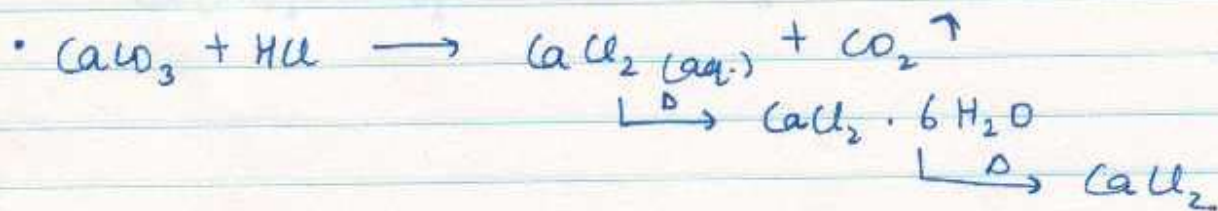 • CaCO₃ + HCl ⟶ CaCl₂ (aq.) + CO₂ ↑
Δ→ CaCl₂ . 6 H₂O
Δ→ CaCl₂